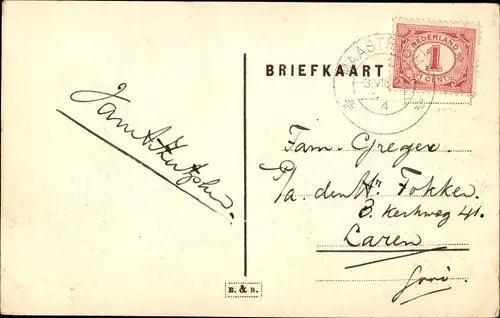 BRIEFKAART
NEDERLAND
1
1 CENT
MAASTR
3.VIII
4
Fam. Greger
P/a. den Hr Fokker.
B. Kerkweg 41.
Laren
Gooi.
E. & B.